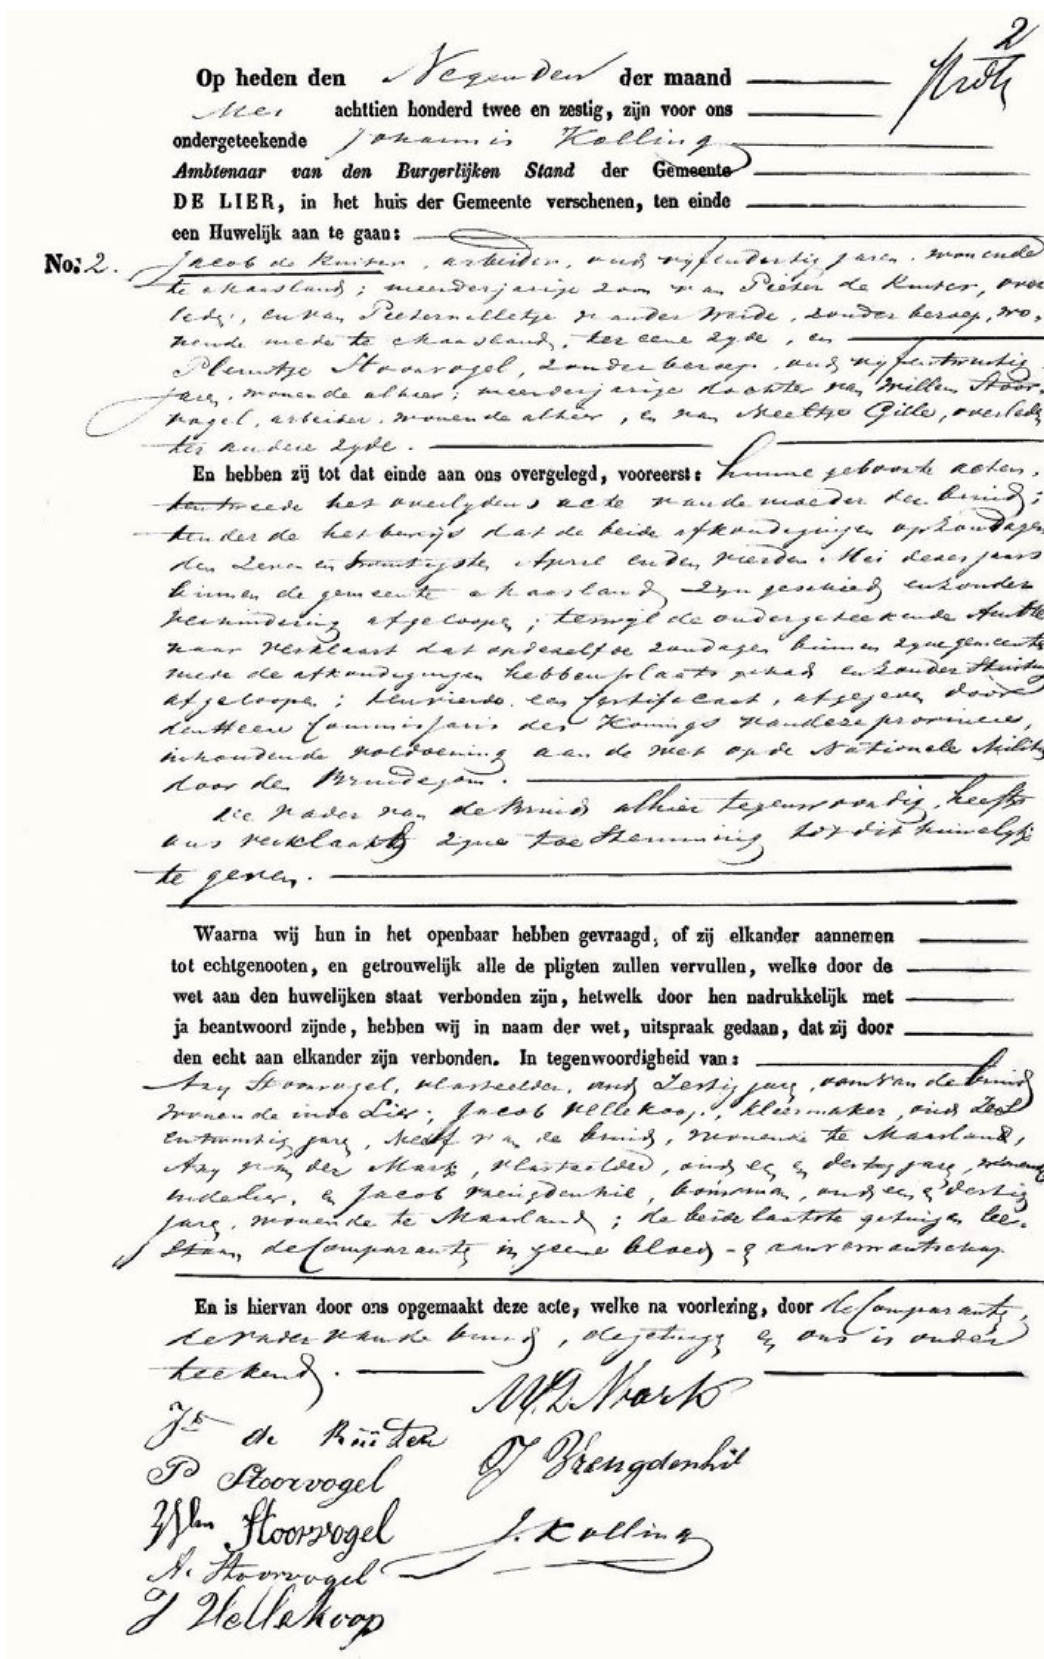 2
Op heden den Negenden der maand
Mei achttien honderd twee en zestig, zijn voor ons
ondergeteekende Johannis Kolling
Ambtenaar van den Burgerlijken Stand der Gemeente
DE LIER, in het huis der Gemeente verschenen, ten einde
een Huwelijk aan te gaan:
No: 2. Jacob de Ruiter, arbeider, oud vyfendertig jaren, wonende
te Maasland; meerderjarige zoon van Pieter de Ruiter, over
leden, en van Pieternelletje vander Weide, zonder beroep, wo-
nende mede te Maasland, ter eene zyde, en
Pleuntje Stoorvogel, zonder beroep, oud vyfentwintig
jaren, wonende alhier; meerderjarige dochter van Willem Stoor
vogel, arbeider, wonende alhier, en van Neeltje Gille, overleden
ter andere zyde.
En hebben zij tot dat einde aan ons overgelegd, vooreerst: hunne geboorte acten,
ten tweede het overlydens acte vande moeder der bruid;
ten derde het bewys dat de beide afkondigingen op Zondagen
den Zeven en twintigsten April en den vierden Mei dezes jaars
binnen de gemeente Maasland zyn geschied en zonder
verhindering afgeloopen; terwyl de ondergeteekende Ambte
naar verklaart dat op dezelfde zondagen binnen zyne gemeente
mede de afkondigingen hebben plaats gehad en zonder stuiting
afgeloopen; ten vierde een Certificaat, afgegeven door
den Heere Commissaris des Konings vandeze provincie,
inhoudende voldoening aan de wet op de Nationale Militie
door den Bruidegom.
De vader van de Bruid alhier tegenwoordig, heeft
ons verklaard zyne toestemming tot dit huwelyk
te geven.
Waarna wij hun in het openbaar hebben gevraagd, of zij elkander aannemen
tot echtgenooten, en getrouwelijk alle de pligten zullen vervullen, welke door de
wet aan den huwelijken staat verbonden zijn, hetwelk door hen nadrukkelijk met
ja beantwoord zijnde, hebben wij in naam der wet, uitspraak gedaan, dat zij door
den echt aan elkander zijn verbonden. In tegenwoordigheid van:
Ary Stoorvogel, vlasteelder, oud Zestig jaren, oom van de bruid
wonende inde Lier; Jacob Vellekoop, kleermaker, oud Zes
entwintig jaren, Neef van de bruid, wonende te Maasland,
Ary van der Mark, vlasteelder, oud een en dertig jaren, wonende
inde Lier, en Jacob Vreugdenhil, bouwman, oud een en dertig
jaren, wonende te Maasland; de beide laatste getuigen be-
staan de Comparanten in geene bloed- en aanverwantschap
En is hiervan door ons opgemaakt deze acte, welke na voorlezing, door de Comparanten,
de vader vande bruid, de getuigen en ons is onder
teekend.
Jb de Rüiter
P Stoorvogel
Wlm Stoorvogel
A. Stoorvogel
J Vellekoop
Mark
J Vreugdenhil
J. Kolling